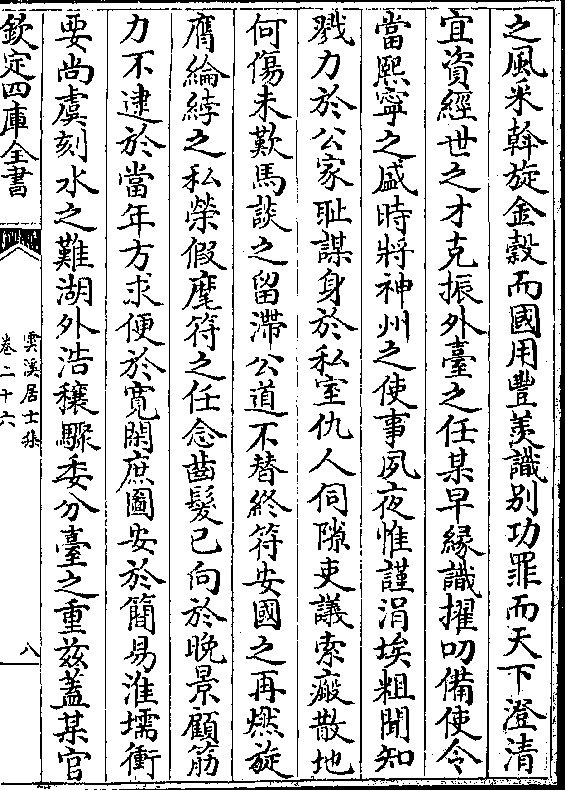 之風采斡旋金穀而國用豐羡識别功罪而天下澄清
宜資經世之才克振外臺之任某早縁識擢叨備使令
當熈寧之盛時將神州之使事夙夜惟謹涓埃粗聞知
戮力於公家耻謀身於私室仇人伺隙吏議索瘢散地
何傷未歎馬談之留滯公道不替終符安國之再燃旋
膺綸綍之私榮假麾符之任念齒髮已向於晩景顧筋
力不逮於當年方求便於寛閑庶圖安於簡易淮壖衝
要尚虞刻水之難湖外浩穰驟委分臺之重兹蓋某官
欽定四庫全書
雲溪居士集
卷二十六
八